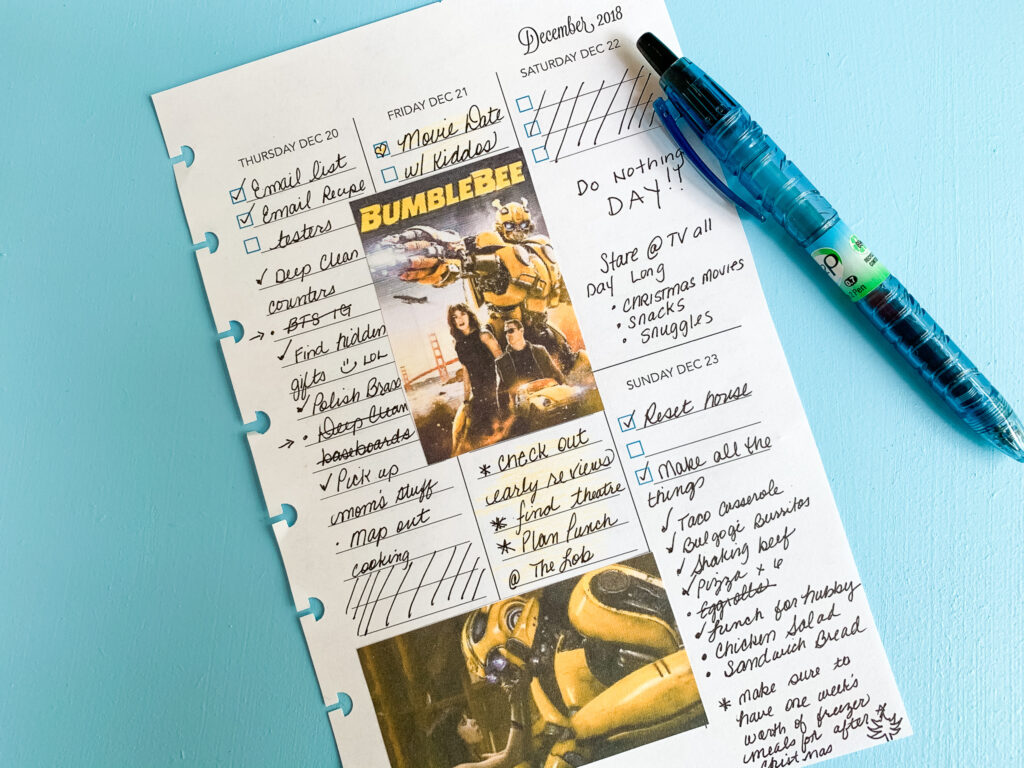 December 2018
THURSDAY DEC 20
Email list
Email Recipe
testers
Deep Clean
counters
→ • BTS IG
Find hidden
gifts LOL
Polish Brass
→ • Deep Clean
baseboards
Pick up
mom's stuff
• Map out
cooking
FRIDAY DEC 21
Movie Date
w/ Kiddos
BUMBLEBEE
* Check out
early reviews
* find theatre
* Plan Punch
@ The Lob
SATURDAY DEC 22
Do Nothing
DAY!!
Stare @ TV all
Day Long
• Christmas movies
• Snacks
• Snuggles
SUNDAY DEC 23
Reset house
Make all the
things
Taco Casserole
Bulgogi Burritos
Shaking beef
Pizza x 6
• Eggrolls
Lunch for hubby
• Chicken Salad
• Sandwich Bread
* make sure to
have one week's
worth of freezer
meals for after
Christmas
0.7
Pen